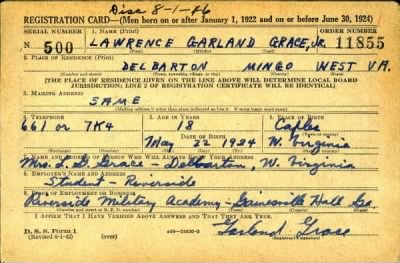 Disc 8-1-46
REGISTRATION CARD—(Men born on or after January 1, 1922 and on or before June 30, 1924)
SERIAL NUMBER 1. NAME (Print) ORDER NUMBER
N 500 LAWRENCE GARLAND GRACE, JR. 11855
(First) (Middle) (Last)
2. PLACE OF RESIDENCE (Print)
DELBARTON MINGO WEST VA.
(Number and street) (Town, township, village, or city) (County) (State)
[THE PLACE OF RESIDENCE GIVEN ON THE LINE ABOVE WILL DETERMINE LOCAL BOARD
JURISDICTION; LINE 2 OF REGISTRATION CERTIFICATE WILL BE IDENTICAL]
3. MAILING ADDRESS
SAME
[Mailing address if other than place indicated on line 2. If same insert word same]
4. TELEPHONE 5. AGE IN YEARS 6. PLACE OF BIRTH
661 or 7K4 18 Caples
DATE OF BIRTH
May 22 1924 W. Virginia
(Exchange) (Number) (Mo.) (Day) (Yr.) (State or country)
7. NAME AND ADDRESS OF PERSON WHO WILL ALWAYS KNOW YOUR ADDRESS
Mrs. L. G. Grace - Delbarton, W. Virginia
8. EMPLOYER'S NAME AND ADDRESS
Student Riverside
9. PLACE OF EMPLOYMENT OR BUSINESS
Riverside Military Academy - Gainesville Hall Ga.
(Number and street or R. F. D. number) (Town) (County) (State)
I AFFIRM THAT I HAVE VERIFIED ABOVE ANSWERS AND THAT THEY ARE TRUE.
D. S. S. Form 1
(Revised 6-1-42) (over) Garland Grace
(Registrant's signature)